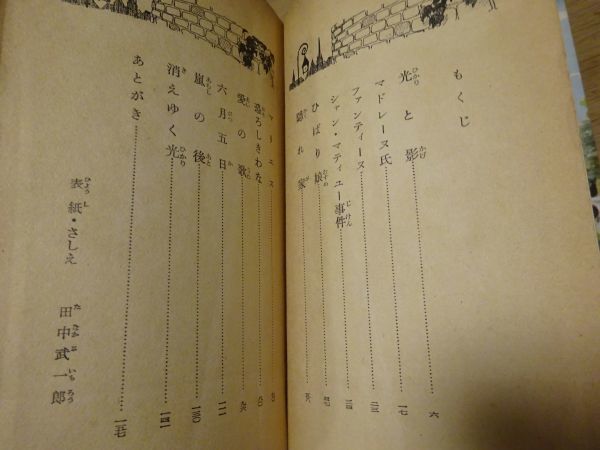 もくじ
光と影 六
マドレーヌ氏 一七
ファンティーヌ 二三
シャン・マティユー事件 三四
ひばり娘
隠れ家
マリユス
恐ろしきわな
愛の歌
六月五日 一一一
嵐の後 一三〇
消えゆく光 一四一
あとがき 一五七
表紙・さしえ 田中武一郎